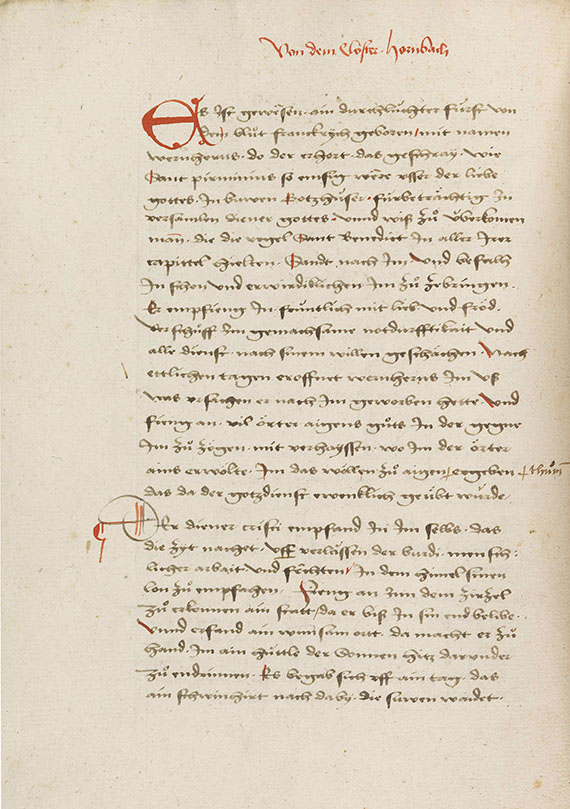 Von dem Closter Hornbach
Es Ist gewesen ain durchluchter furst von
dem blut franckrych geboren / mit namen
wernherus · do der erhort · das geschray · wie
Sant pirminius so emsig were vsser der liebe
gottes · In buwen Gotzhüser · fürbetrachtig In
versamlen diener gottes · vnnd wiß zů überkomen
mann · die die regel Sant Benedict In aller Irer
capittel hielten · Sandt nach Im · vnd befalh
In schon vnd erwirdiklichen Im zů zebringen ·
Er empfieng In früntlich mit lieb vnd fröd ·
verschůff Im gemachsame notdurfftikait vnd
alle dienst · nach sinem willen geschächen · Nach
ettlichen tagen eroffnet wernherus Im vß
was vrsachen er nach Im geworben hette · vnd
fieng an · vil örter aigens gůts In der gegne
Im zů zögen · mit verhayssen · wo Im der örter
ains erwölte · Im das wöllen zů aigen ergeben
das da der gotzdienst ewenklich geübt wurde ·
Der diener cristi empfand In Im selbs · das
die zyt nachet · vff verlussen der burdi · mensch=
licher arbait vnd fechten / In dem himel sinen
lon zů empfachen · Fieng an zun dem zirzel
zů erkennen ain statt / da er biß In sin end belibe ·
vnnd erfand ain wunsam ort · da macht er zů
hand · Im ain hüttle der Sonnen hitz darunder
zů endrinnen · Es begab sich vff ain tag · das
ain schwinhirt nach daby · die suwen waidet ·